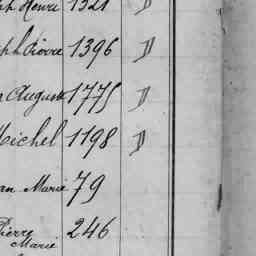 ph Henri 1321 D
ph Pierre 1396 D
n Auguste 1775 D
Michel 1198 D
an Marie 79
Pierre 246
Marie